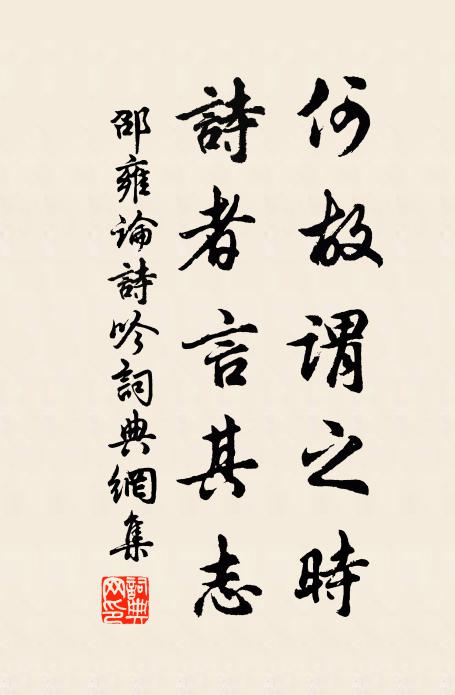 何故謂之時
詩者言其志
邵雍論詩吟詞典網集
詞典网印